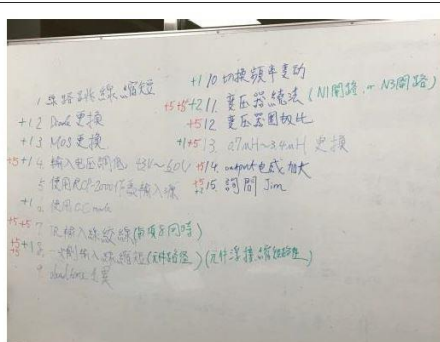 1 線路跳線縮短
+1 2 Diode 更換
+1 3 MOS 更換
+5 +1 4 輸入电压調危 43V~60V
5 使用 輸入線
+1 6 使用 CC mode
+5 +5 7 輸入線絞線 (兩項同時)
+5 +5 +1 8 一次側輸入線縮短 (元件路徑) (元件浮接.縮短路徑)
9 dead time 变更
+1 10 切換頻率变动
+5 +5 +2 11. 变压器繞法 (N1開路. or N3開路)
+5 12 变压器圈数比
+1 +5 13. 47mH~34mH 更換
+5 14. output 电感加大
+5 +5 15. 詢問 Jim